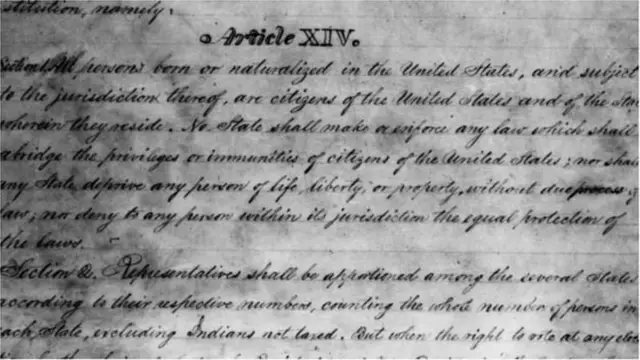 stitution, namely:
Article XIV.
Section 1. All persons born or naturalized in the United States, and subject
to the jurisdiction thereof, are citizens of the United States and of the State
wherein they reside. No State shall make or enforce any law which shall
abridge the privileges or immunities of citizens of the United States; nor shall
any State deprive any person of life, liberty, or property, without due process of
law; nor deny to any person within its jurisdiction the equal protection of
the laws.
Section 2. Representatives shall be apportioned among the several States
according to their respective numbers, counting the whole number of persons in
each State, excluding Indians not taxed. But when the right to vote at any elec